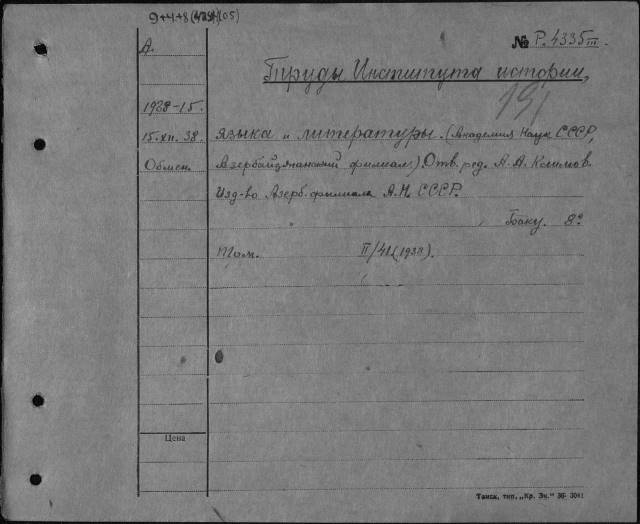 9+4+8(479)(05)
А.
№ Р.4335 III.
Труды Института истории,
191
1938-15.
15.XII.38. языка и литературы. (Академия Наук СССР,
Обмен. Азербайджанский филиал). Отв. ред. А. А. Климов.
Изд-во Азерб. филиала А.Н. СССР.
Баку. 8º
Том. II/41 (1938).
Цена
Томск, тип. „Кр. Зн." 36- 3041